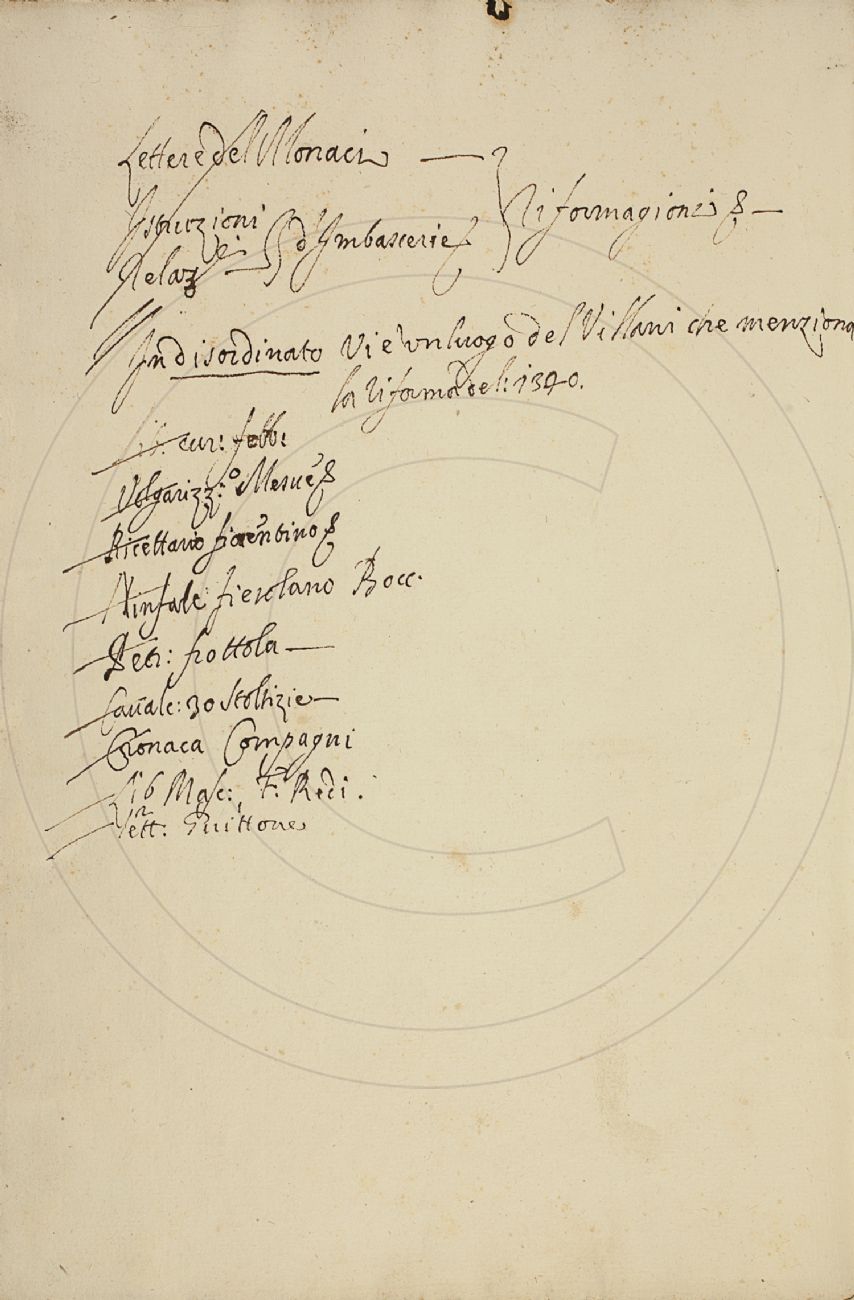 Lettere del Monaci —
Istruzioni
Relaz.ni d'Imbascerie
Riformagioni —
In disordinato Vi è un luogo del Villani che menziona
la riforma del: 1340.
Lib: cur: febb:
Volgarizz:o Mesue
Ricettario fiorentino
Ninfale fiesolano Bocc.
Petr: frottola —
Cavalc: 30 Stoltizie —
Cronaca Compagni
Lib Masc: F. Redi.
Lett: Guittone